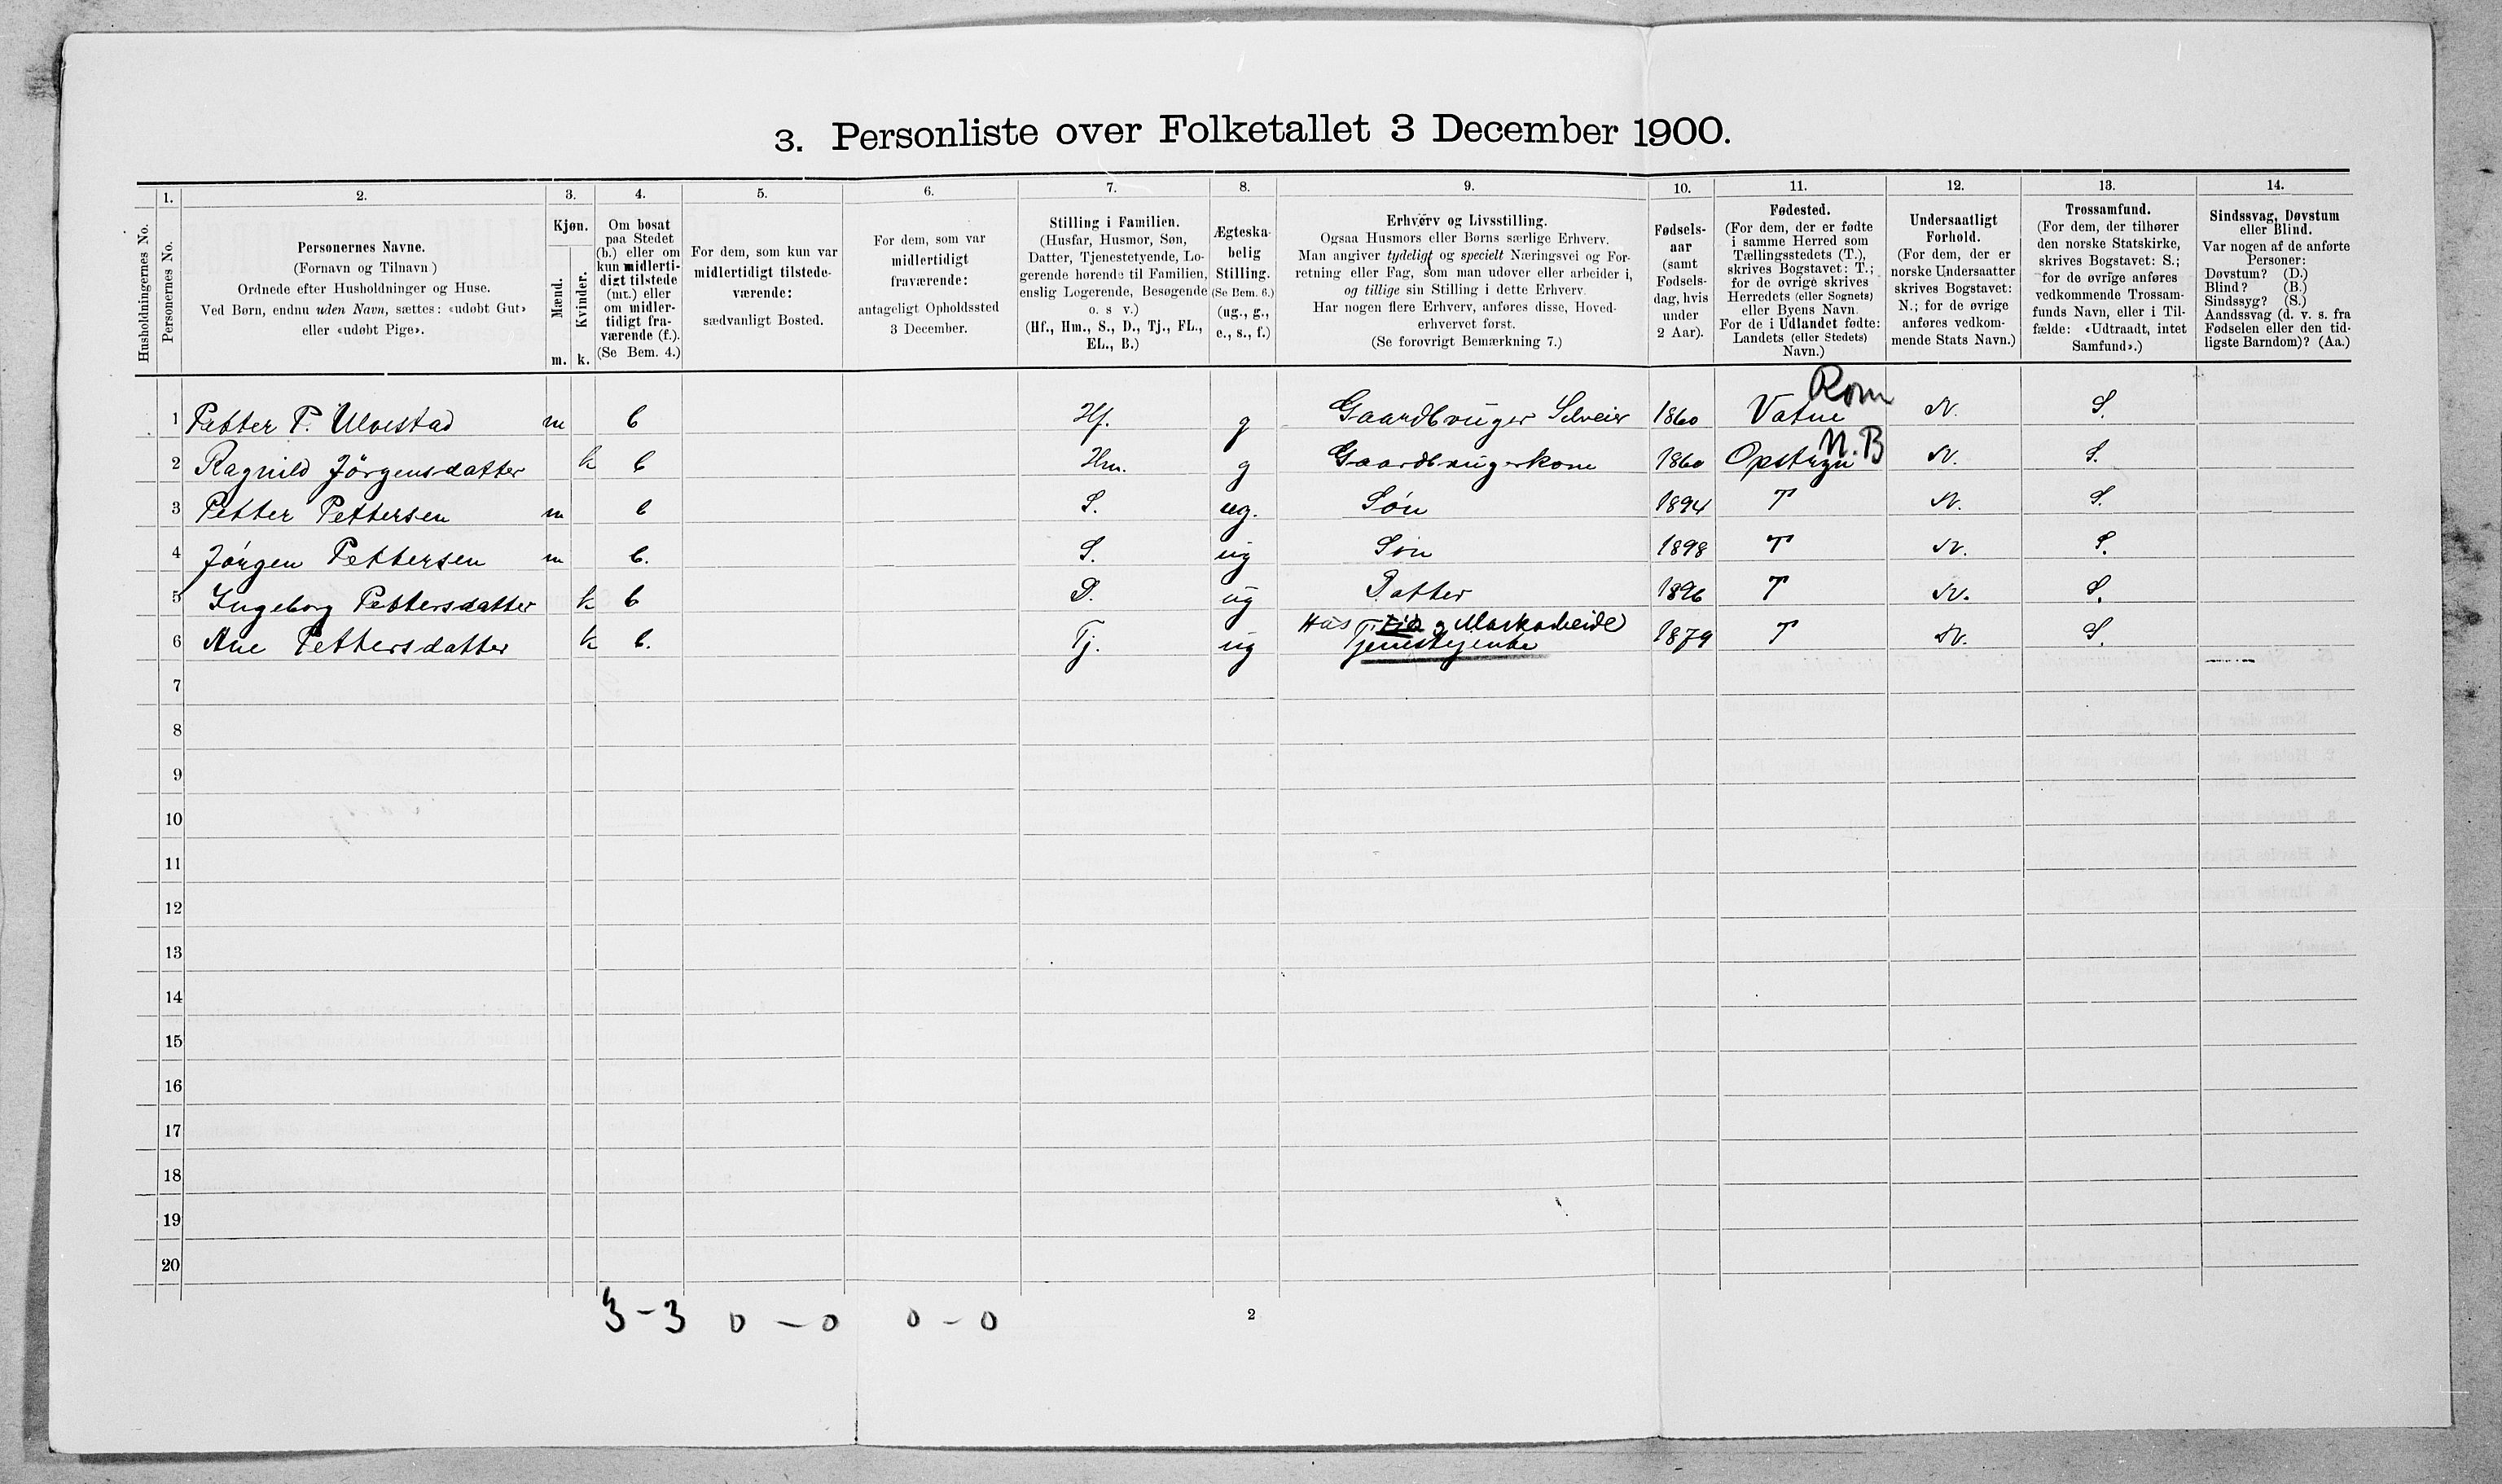 3. Personliste over Folketallet 3 December 1900.
1. 2. 3. 4. 5. 6. 7. 8. 9. 10. 11. 12. 13. 14.
Husholdningernes No.
Personernes No.
Personernes Navne.
(Fornavn og Tilnavn)
Ordnede efter Husholdninger og Huse.
Ved Børn, endnu uden Navn, sættes: «udøbt Gut»
eller «udøbt Pige».
Kjøn.
Mænd.
Kvinder.
m. k.
Om bosat
paa Stedet
(b.) eller om
kun midlerti-
digt tilstede
(mt.) eller
om midler-
tidigt fra-
værende (f.).
(Se Bem. 4.)
For dem, som kun var
midlertidigt tilstede-
værende:
sædvanligt Bosted.
For dem, som var
midlertidigt
fraværende:
antageligt Opholdssted
3 December.
Stilling i Familien.
(Husfar, Husmor, Søn,
Datter, Tjenestetyende, Lo-
gerende hørende til Familien,
enslig Logerende, Besøgende
o. s v.)
(Hf., Hm., S., D., Tj., FL.,
EL., B.)
Ægteska-
belig
Stilling.
(Se Bem. 6.)
(ug., g.,
e., s., f.)
Erhverv og Livsstilling.
Ogsaa Husmors eller Børns særlige Erhverv.
Man angiver tydeligt og specielt Næringsvei og For-
retning eller Fag, som man udøver eller arbeider i,
og tillige sin Stilling i dette Erhverv.
Har nogen flere Erhverv, anføres disse, Hoved-
erhvervet først.
(Se forøvrigt Bemærkning 7.)
Fødsels-
aar
(samt
Fødsels-
dag, hvis
under
2 Aar).
Fødested.
(For dem, der er fødte
i samme Herred som
Tællingsstedets (T.),
skrives Bogstavet: T.;
for de øvrige skrives
Herredets (eller Sognets)
eller Byens Navn.
For de i Udlandet fødte:
Landets (eller Stedets)
Navn.)
Undersaatligt
Forhold.
(For dem, der er
norske Undersaatter
skrives Bogstavet:
N.; for de øvrige
anføres vedkom-
mende Stats Navn.)
Trossamfund.
(For dem, der tilhører
den norske Statskirke,
skrives Bogstavet: S.;
for de øvrige anføres
vedkommende Trossam-
funds Navn, eller i Til-
fælde: «Udtraadt, intet
Samfund».)
Sindssvag, Døvstum
eller Blind.
Var nogen af de anførte
Personer:
Døvstum? (D.)
Blind? (B.)
Sindssyg? (S.)
Aandssvag (d. v. s. fra
Fødselen eller den tid-
ligste Barndom)? (Aa.)
Rom
1 Petter P. Ulvestad m b Hf. g Gaardbruger Selveier 1860 Vatne N. S.
N.B
2 Ragnild Jörgensdatter k b Hm. g Gaardbrugerkone 1860 Opstryn N. S.
3 Petter Pettersen m b S. ug. Søn 1894 T N. S.
4 Jörgen Pettersen m b. S. ug Søn 1898 T N. S.
5 Ingeborg Pettersdatter k b D. ug Datter 1896 T N. S.
Hus og Markarbeide
6 Ane Pettersdatter k b. Tj. ug Tjenestejente 1879 T N. S.
7
8
9
10
11
12
13
14
15
16
17
18
19
20
3-3 0-0 0-0
2